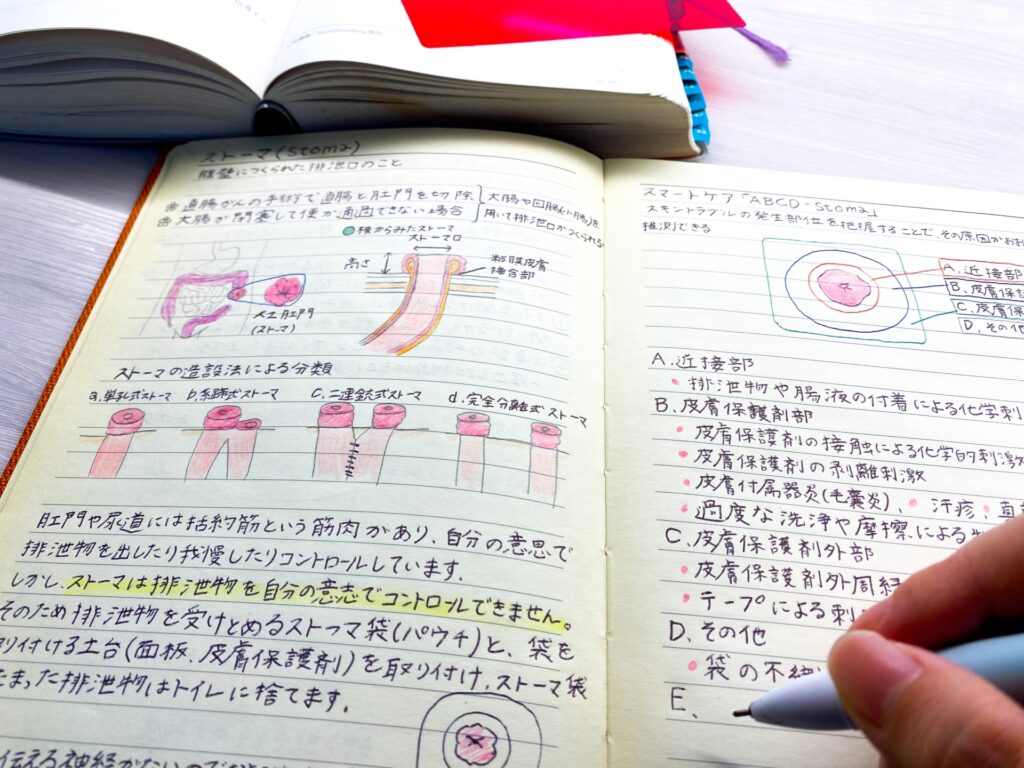 ストーマ(stoma)
腹壁につくられた排泄口のこと
※直腸がんの手術で直腸と肛門を切除
※大腸が閉塞して便が通過できない場合
大腸や回腸(小腸)を
用いて排泄口がつくられる
横からみたストーマ
ストーマ口
高さ
粘膜皮膚
接合部
人工肛門
(ストーマ)
ストーマの造設法による分類
a.単孔式ストーマ b.係蹄式ストーマ C.二連銃式ストーマ d.完全分離式ストーマ
肛門や尿道には括約筋という筋肉があり、自分の意思で
排泄物を出したり我慢したりコントロールしています.
しかし、ストーマは排泄物を自分の意志でコントロールできません。
そのため排泄物を受けとめるストーマ袋(パウチ)と、袋を
り付ける土台(面板、皮膚保護剤)を取り付け,ストーマ袋
たまった排泄物はトイレに捨てます.
伝える神経がないので
スマートケア「ABCD-Stoma」
スキントラブルの発生部位を把握することで、その原因が
推測できる
A.近接部
B.皮膚保護
C.皮膚保
D.その他
A.近接部
・排泄物や腸液の付着による化学刺
B.皮膚保護剤部
・皮膚保護剤の接触による化学的刺激
・皮膚保護剤の剥離刺激
・皮膚付属器炎(毛嚢炎)、・汗疹、直
・過度な洗浄や摩擦による
C.皮膚保護剤外部
・皮膚保護剤外周縁
・テープによる刺
D.その他
・袋の不
E、